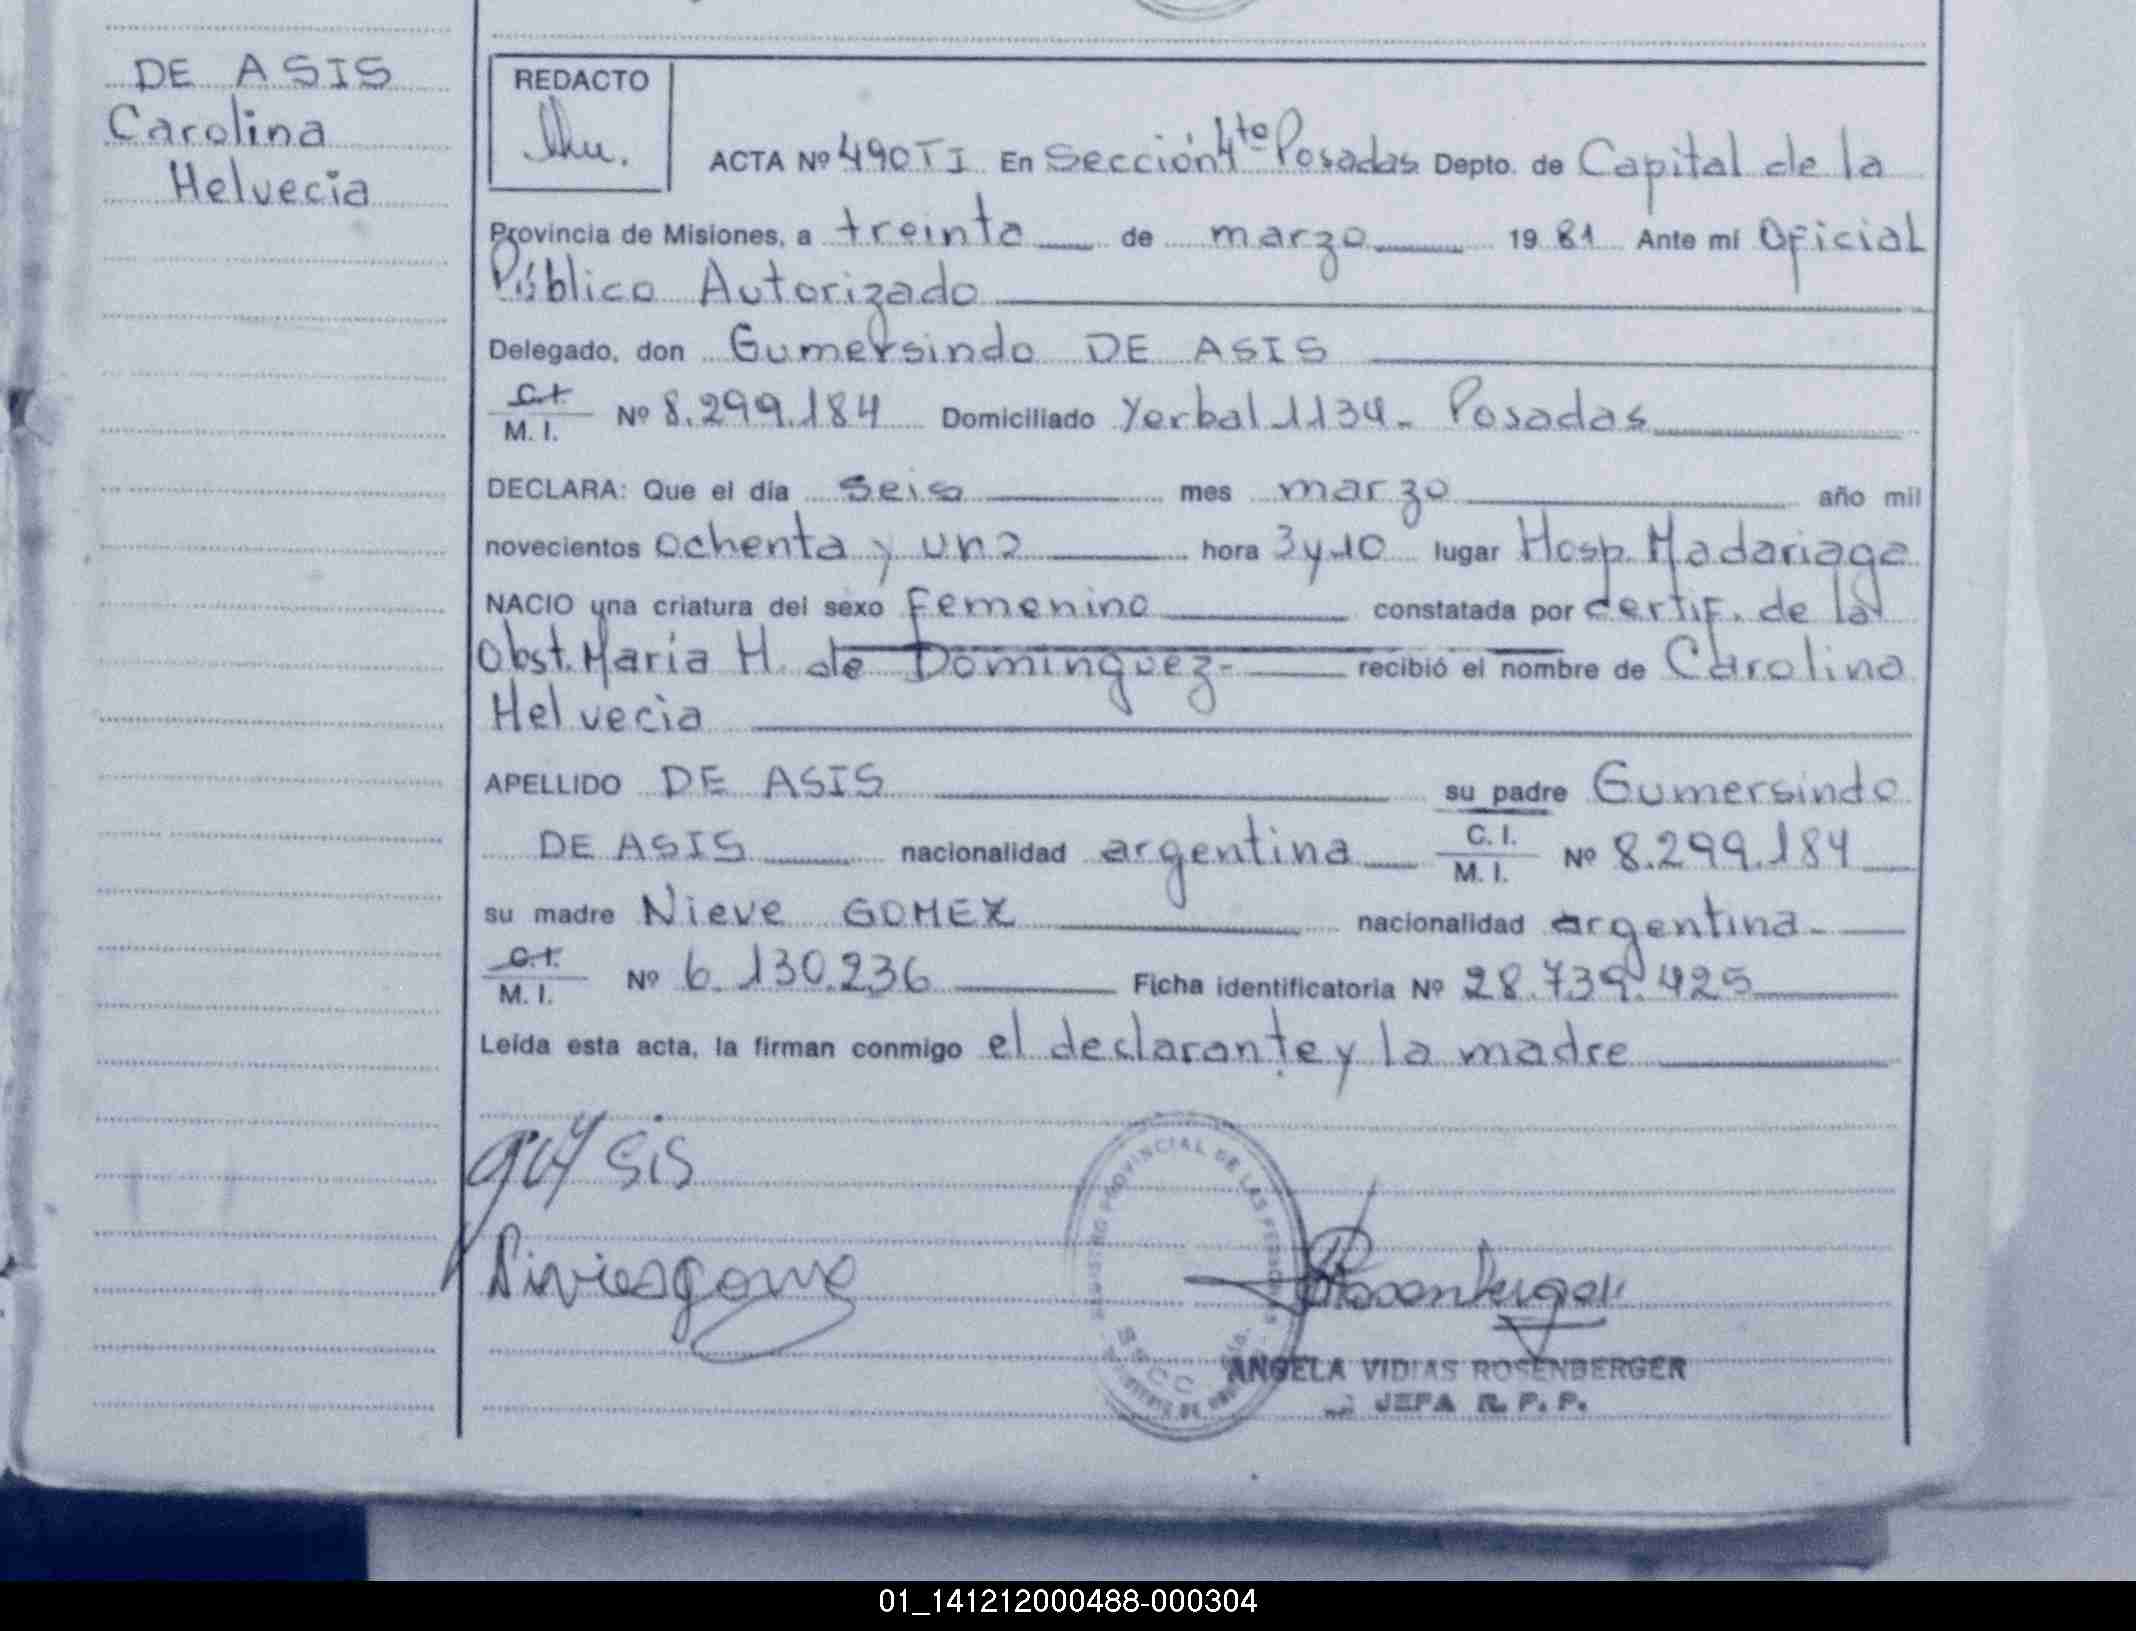 DE ASIS
Carolina
Helvecia
REDACTO
ACTA Nº 490 T I En Sección 4ta Posadas Depto. de Capital de la
Provincia de Misiones, a treinta de marzo 1981 Ante mí Oficial
Público Autorizado
Delegado, don Gumersindo DE ASIS
C.I.
M. I. Nº 8.299.184 Domiciliado Yerbal 1134- Posadas
DECLARA: Que el día seis mes marzo año mil
novecientos ochenta y uno hora 3 y 10 lugar Hosp. Madariaga
NACIO una criatura del sexo femenino constatada por certif. de la
Obst. Maria H. de Dominguez- recibió el nombre de Carolina
Helvecia
APELLIDO DE ASIS su padre Gumersindo
DE ASIS nacionalidad argentina C. I.
M. I. Nº 8.299.184
su madre Nieve GOMEZ nacionalidad argentina-
C.I.
M. I. Nº 6.130.236 Ficha identificatoria Nº 28.739.425
Leída esta acta, la firman conmigo el declarante y la madre
sis
REGISTRO PROVINCIAL DE LAS PERSONAS
Rosenberger
ANGELA VIDIAS ROSENBERGER
JEFA R. P. P.
01_141212000488-000304